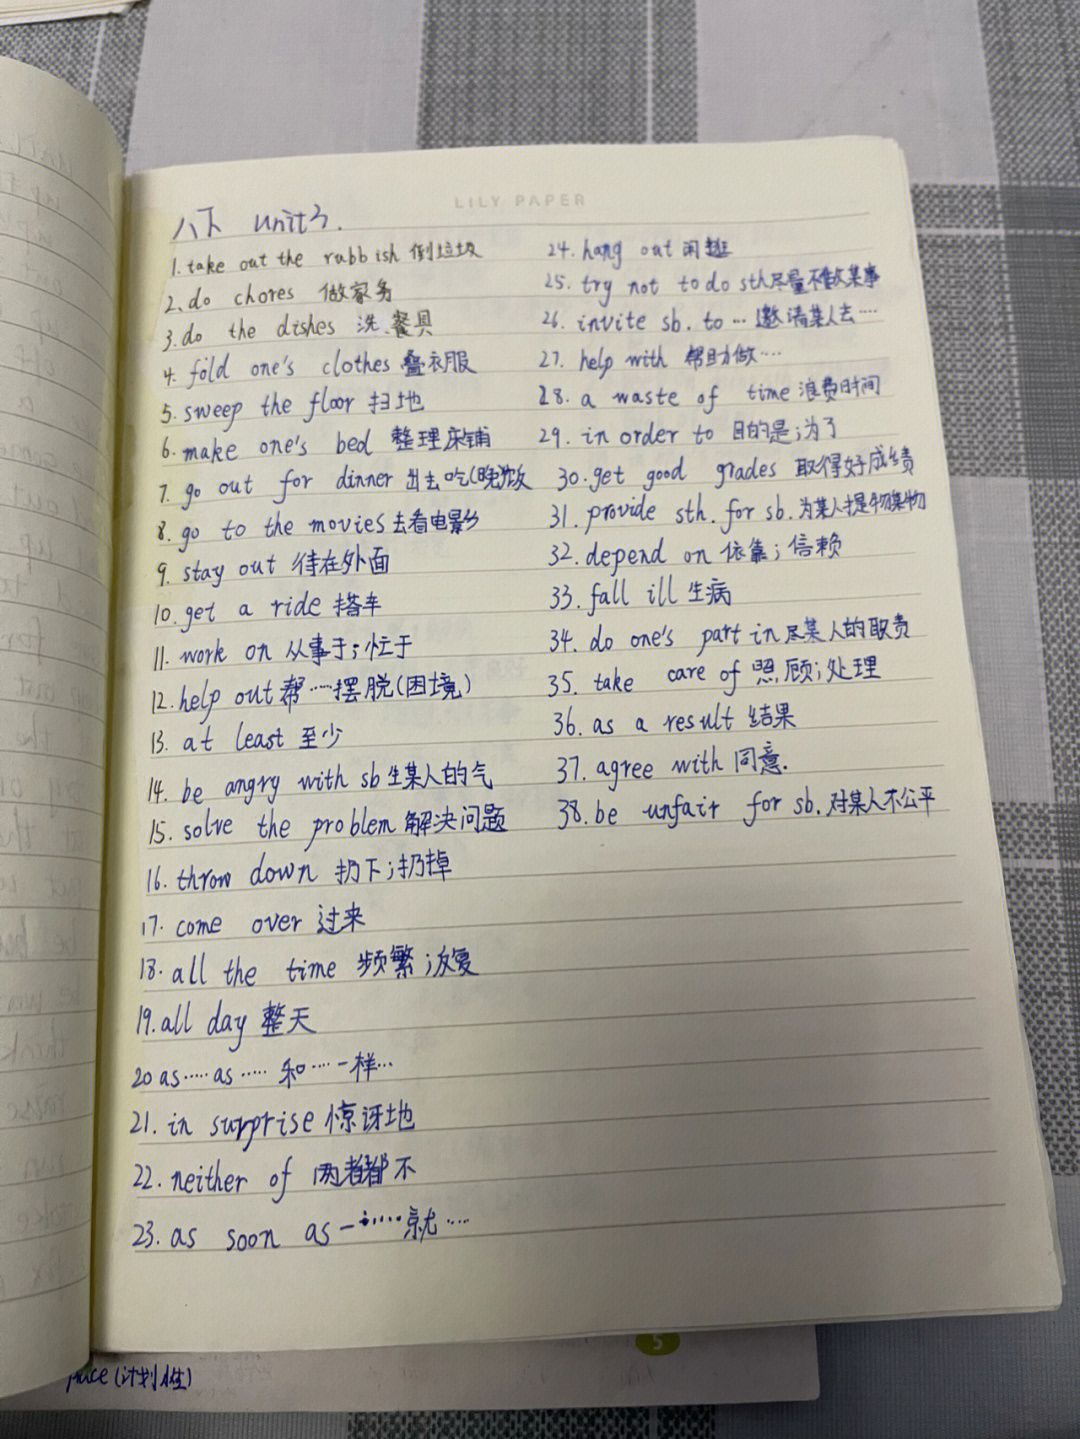 LILY PAPER
八下 unit3.
1. take out the rubbish 倒垃圾
2. do chores 做家务
3. do the dishes 洗餐具
4. fold one's clothes 叠衣服
5. sweep the floor 扫地
6. make one's bed 整理床铺
7. go out for dinner 出去吃(晚)饭
8. go to the movies 去看电影
9. stay out 待在外面
10. get a ride 搭车
11. work on 从事于;忙于
12. help out 帮……摆脱(困境)
13. at least 至少
14. be angry with sb 生某人的气
15. solve the problem 解决问题
16. throw down 扔下;扔掉
17. come over 过来
18. all the time 频繁;反复
19. all day 整天
20 as……as…… 和……一样…
21. in surprise 惊讶地
22. neither of 两者都不
23. as soon as 一……就……
24. hang out 闲逛
25. try not to do sth 尽量不做某事
26. invite sb. to … 邀请某人去……
27. help with 帮助做……
28. a waste of time 浪费时间
29. in order to 目的是;为了
30. get good grades 取得好成绩
31. provide sth. for sb. 为某人提供某物
32. depend on 依靠;信赖
33. fall ill 生病
34. do one's part in 尽某人的职责
35. take care of 照顾;处理
36. as a result 结果
37. agree with 同意.
38. be unfair for sb. 对某人不公平
(计划性)
5